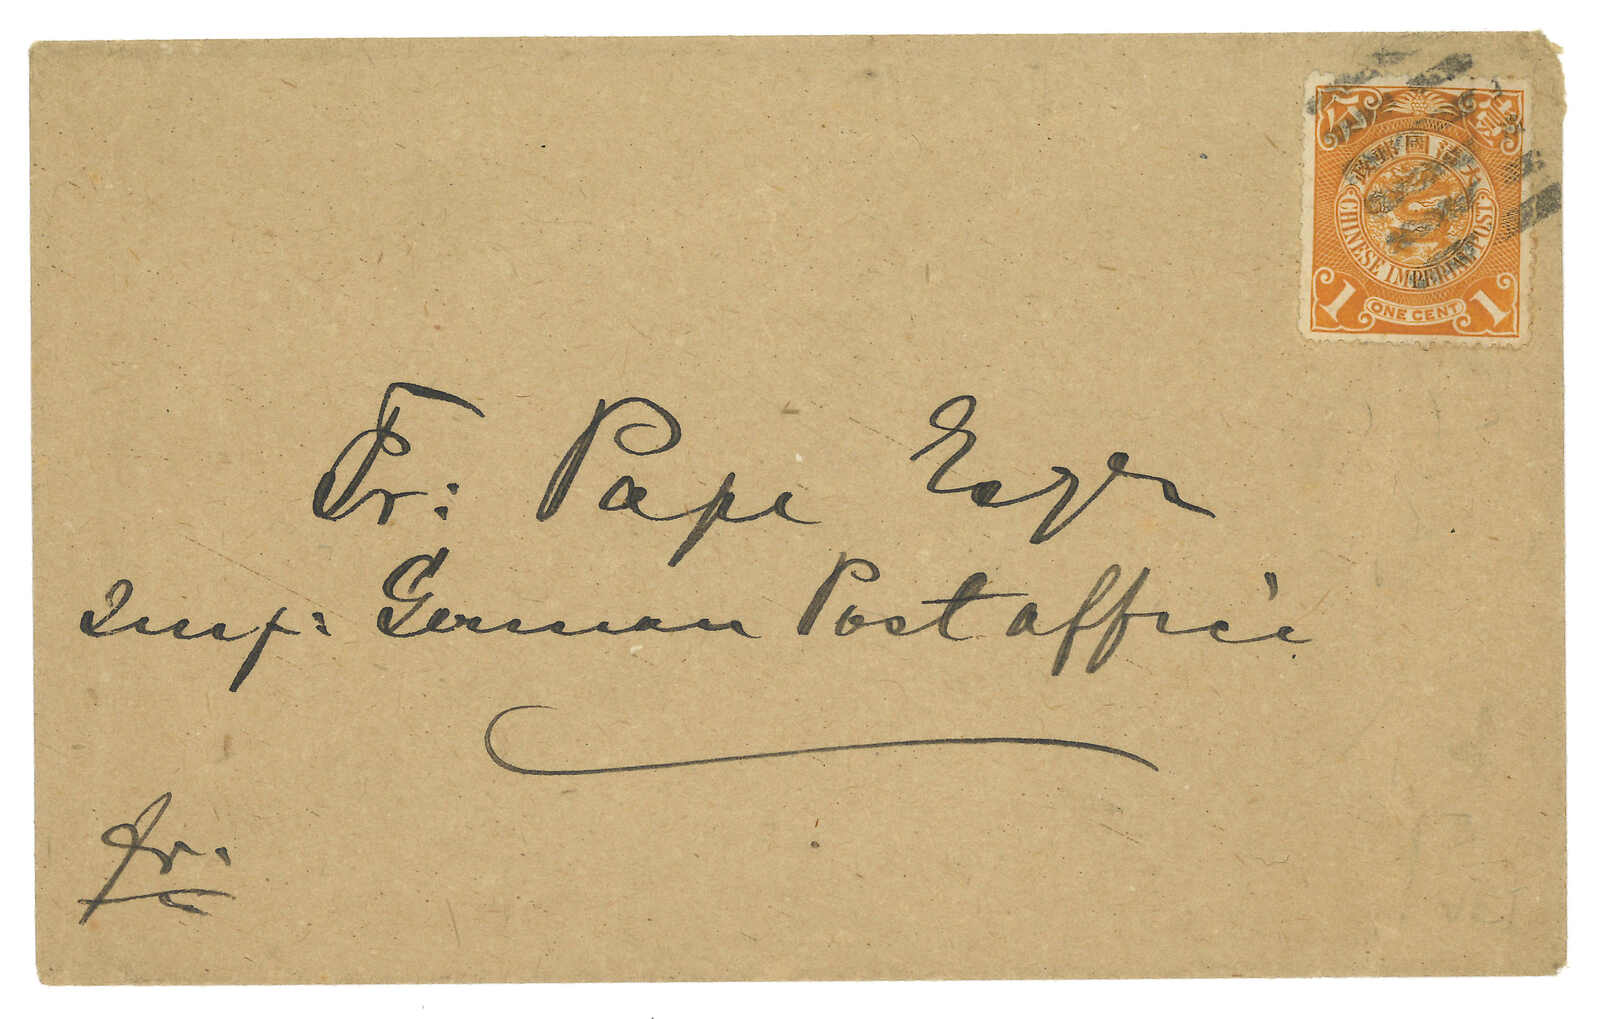 分 壹
政郵國清大
CHINESE IMPERIAL POST
1 ONE CENT 1
Fr: Pape Esqr
Imp: German Postoffice
fr: